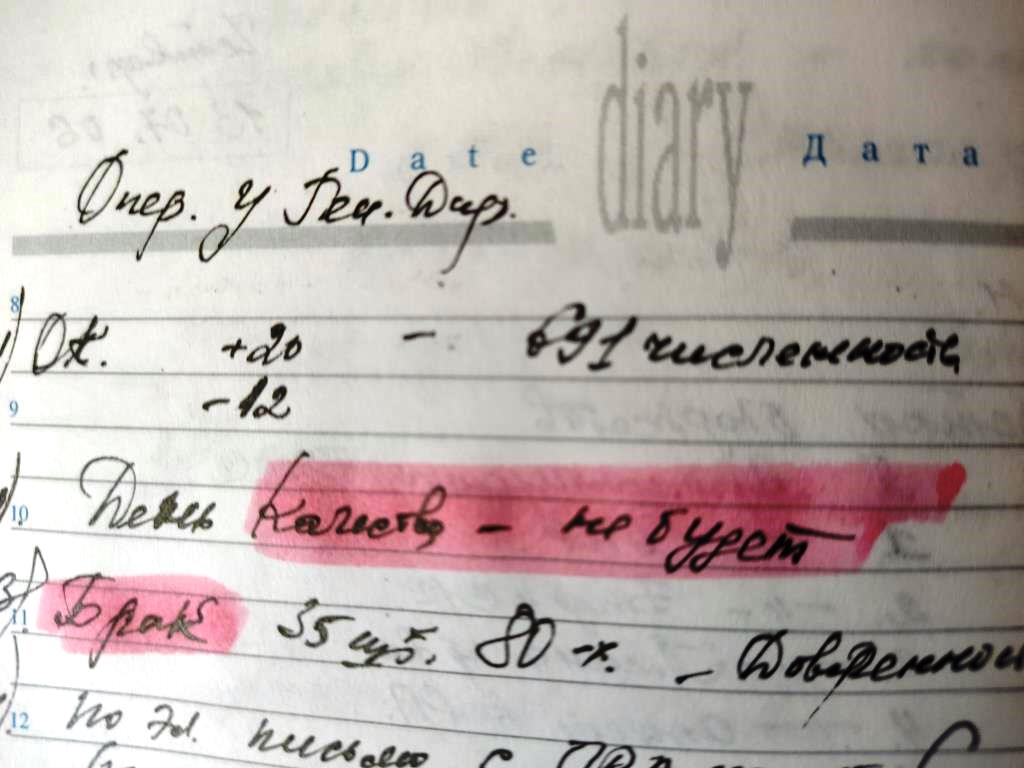 diary
Date Дата
Опер. у Ген. Дир.
8
ОК. +20 - 691 численность
9 -12
10 День Качества - не будет
3) 11 Брак 35 шт. 80 -х. - Доверенност
12 по эл. письмо с